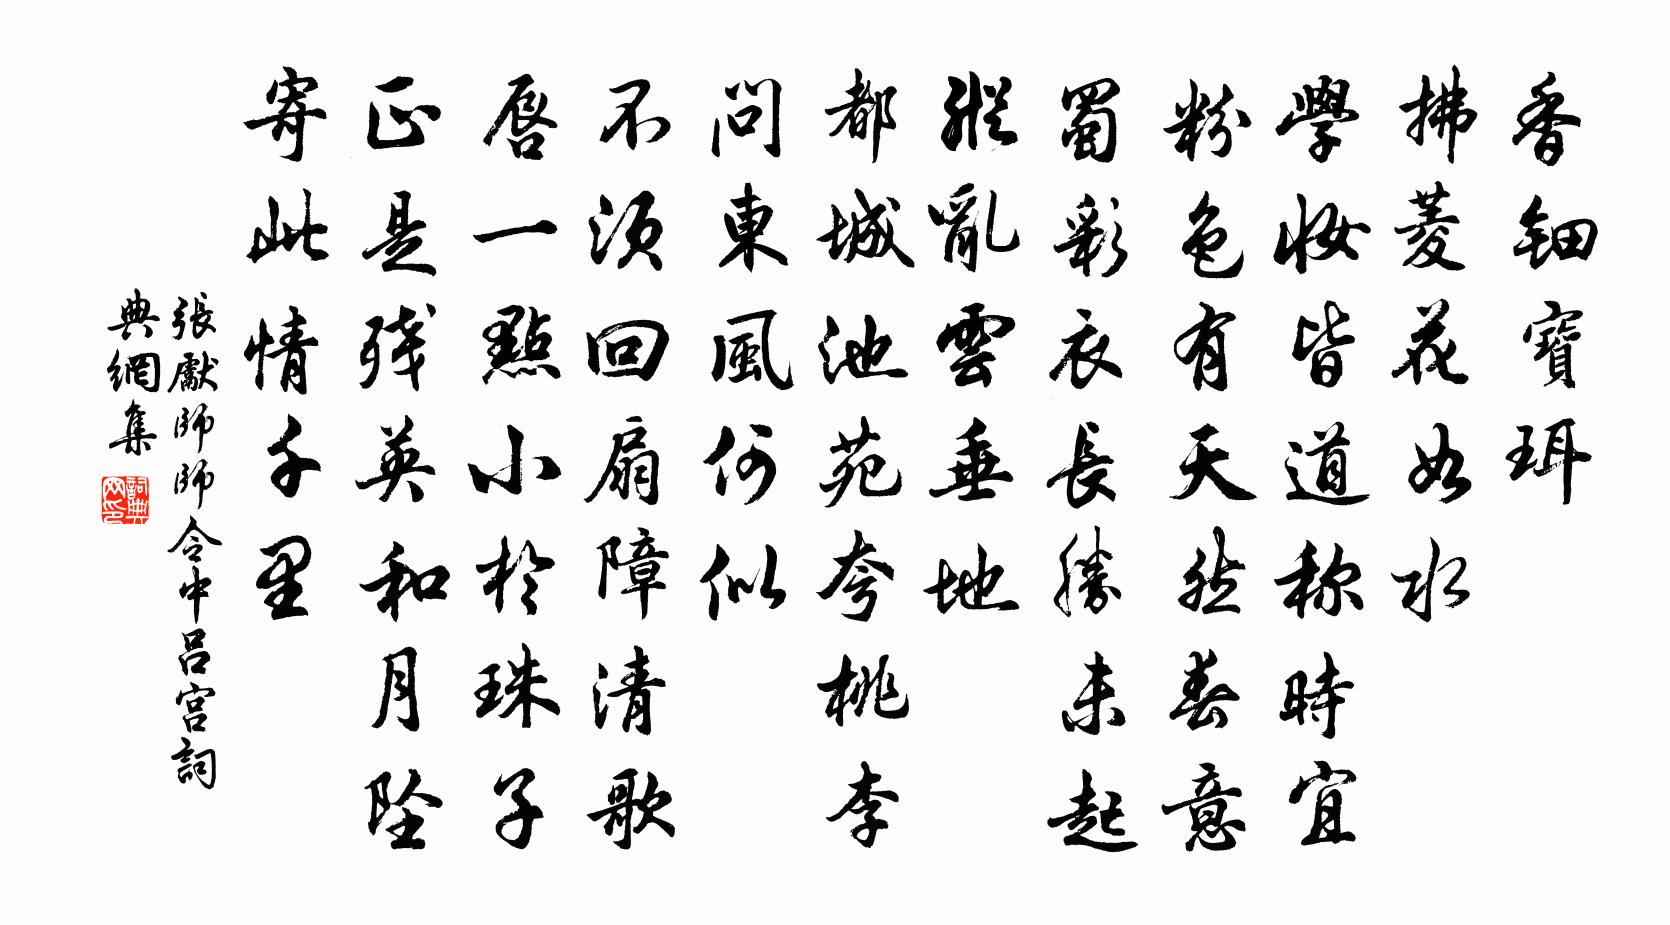 香鈿寶珥
拂菱花如水
學妝皆道称時宜
粉色有天然春意
蜀彩衣長勝未起
縱亂雲垂地
都城池苑夸桃李
問東風何似
不須回扇障清歌
唇一點小於珠子
正是残英和月墜
寄此情千里
張獻師師令中呂宮詞
典網集
詞典网印